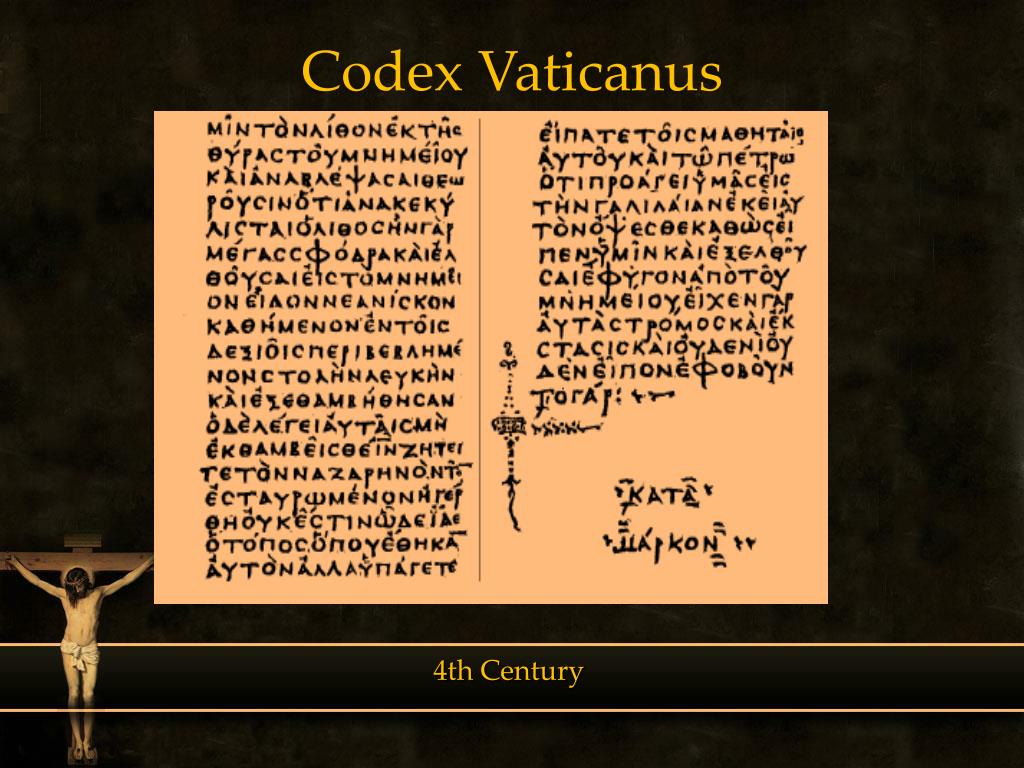 Codex Vaticanus
ΜῖΝΤῸΝΛΊΘΟΝἘΚΤῆϹ
ΘΎΡΑϹΤΟΥ͂ΜΝΗΜΕΊΟΥ
ΚΑῚἈΝΑΒΛΈΨΑϹΑΙΘΕω
ΡΟΥ͂ϹΙΝὍΤΙἈΝΑΚΕΚΎ
ΛΙϹΤΑΙὉΛΊΘΟϹἮΝΓᾺΡ
ΜΈΓΑϹϹΦΌΔΡΑΚΑῚἘΛ
ΘΟΥ͂ϹΑΙΕἸϹΤῸΜΝΗΜΕῖ
ΟΝΕἾΔΟΝΝΕΑΝΊϹΚΟΝ
ΚΑΘΉΜΕΝΟΝἘΝΤΟῖϹ
ΔΕΞΙΟῖϹΠΕΡΙΒΕΒΛΗΜΈ
ΝΟΝϹΤΟΛῊΝΛΕΥΚῊΝ
ΚΑῚἘΞΕΘΑΜΒΉΘΗϹΑΝ
ὉΔῈΛΈΓΕΙΑΥ̓ΤΑῖϹΜῊ
ἘΚΘΑΜΒΕῖϹΘΕΙΝΖΗΤΕΙ
ΤΕΤῸΝΝΑΖΑΡΗΝῸΝΤ̄
ἘϹΤΑΥΡωΜΈΝΟΝἨΓΈΡ
ΘΗΟΥ̓ΚἜϹΤΙΝὯΔΕἼΔΕ
ὉΤΌΠΟϹὍΠΟΥἜΘΗΚᾹ
ΑΥ̓ΤῸΝἈΛΛΑΫΠΆΓΕΤΕ
ΕἼΠΑΤΕΤΟῖϹΜΑΘΗΤΑῖϹ
ΑΥ̓ΤΟΥ͂ΚΑῚΤῶΠΈΤΡω
ὍΤΙΠΡΟΆΓΕΙΫΜᾶϹΕἸϹ
ΤῊΝΓΑΛΙΛΑΊΑΝἘΚΕῖΑΥ
ΤῸΝὌΨΕϹΘΕΚΑΘῺϹΕἾ
ΠΕΝΫΜῖΝΚΑῚἘΞΕΛΘΟΥ͂
ϹΑΙἜΦΥΓΟΝἈΠῸΤΟΥ͂
ΜΝΗΜΕΊΟΥΕἾΧΕΝΓᾺΡ
ΑΥ̓ΤᾺϹΤΡΌΜΟϹΚΑῚἜΚ
ϹΤΑϹΙϹΚΑῚΟΥ̓ΔΕΝῚΟΥ̓
ΔῈΝΕἾΠΟΝἘΦΟΒΟΥ͂Ν
ΤΟΓΆΡ:
ΚΑΤᾺ
ΜΆΡΚΟΝ
4th Century